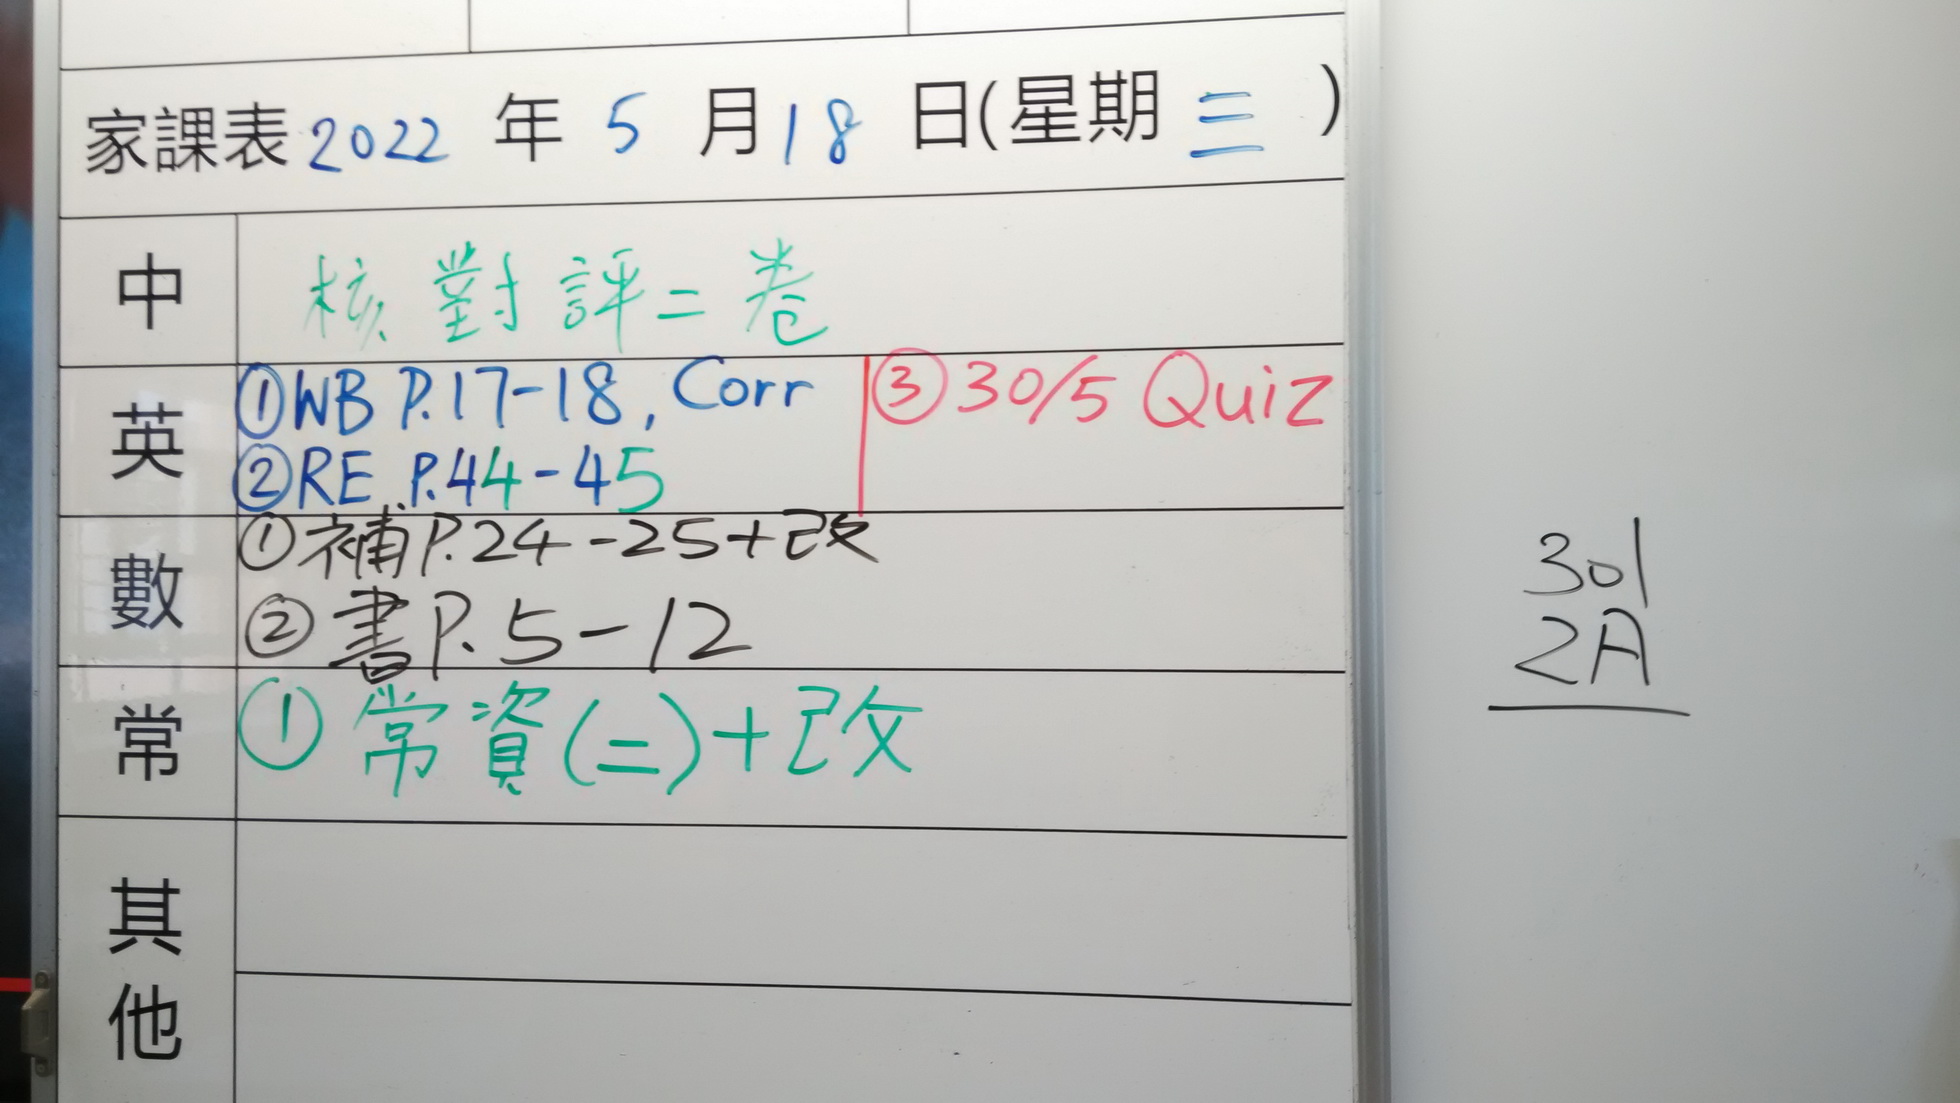 家課表2022年5月18日(星期三)
中 核對評二卷
英 ①WB P.17-18, Corr ③30/5 Quiz
②RE P.44-45
數 ①補P.24-25+改
②書P.5-12
常 ①常資(二)+改
其他
301
2A